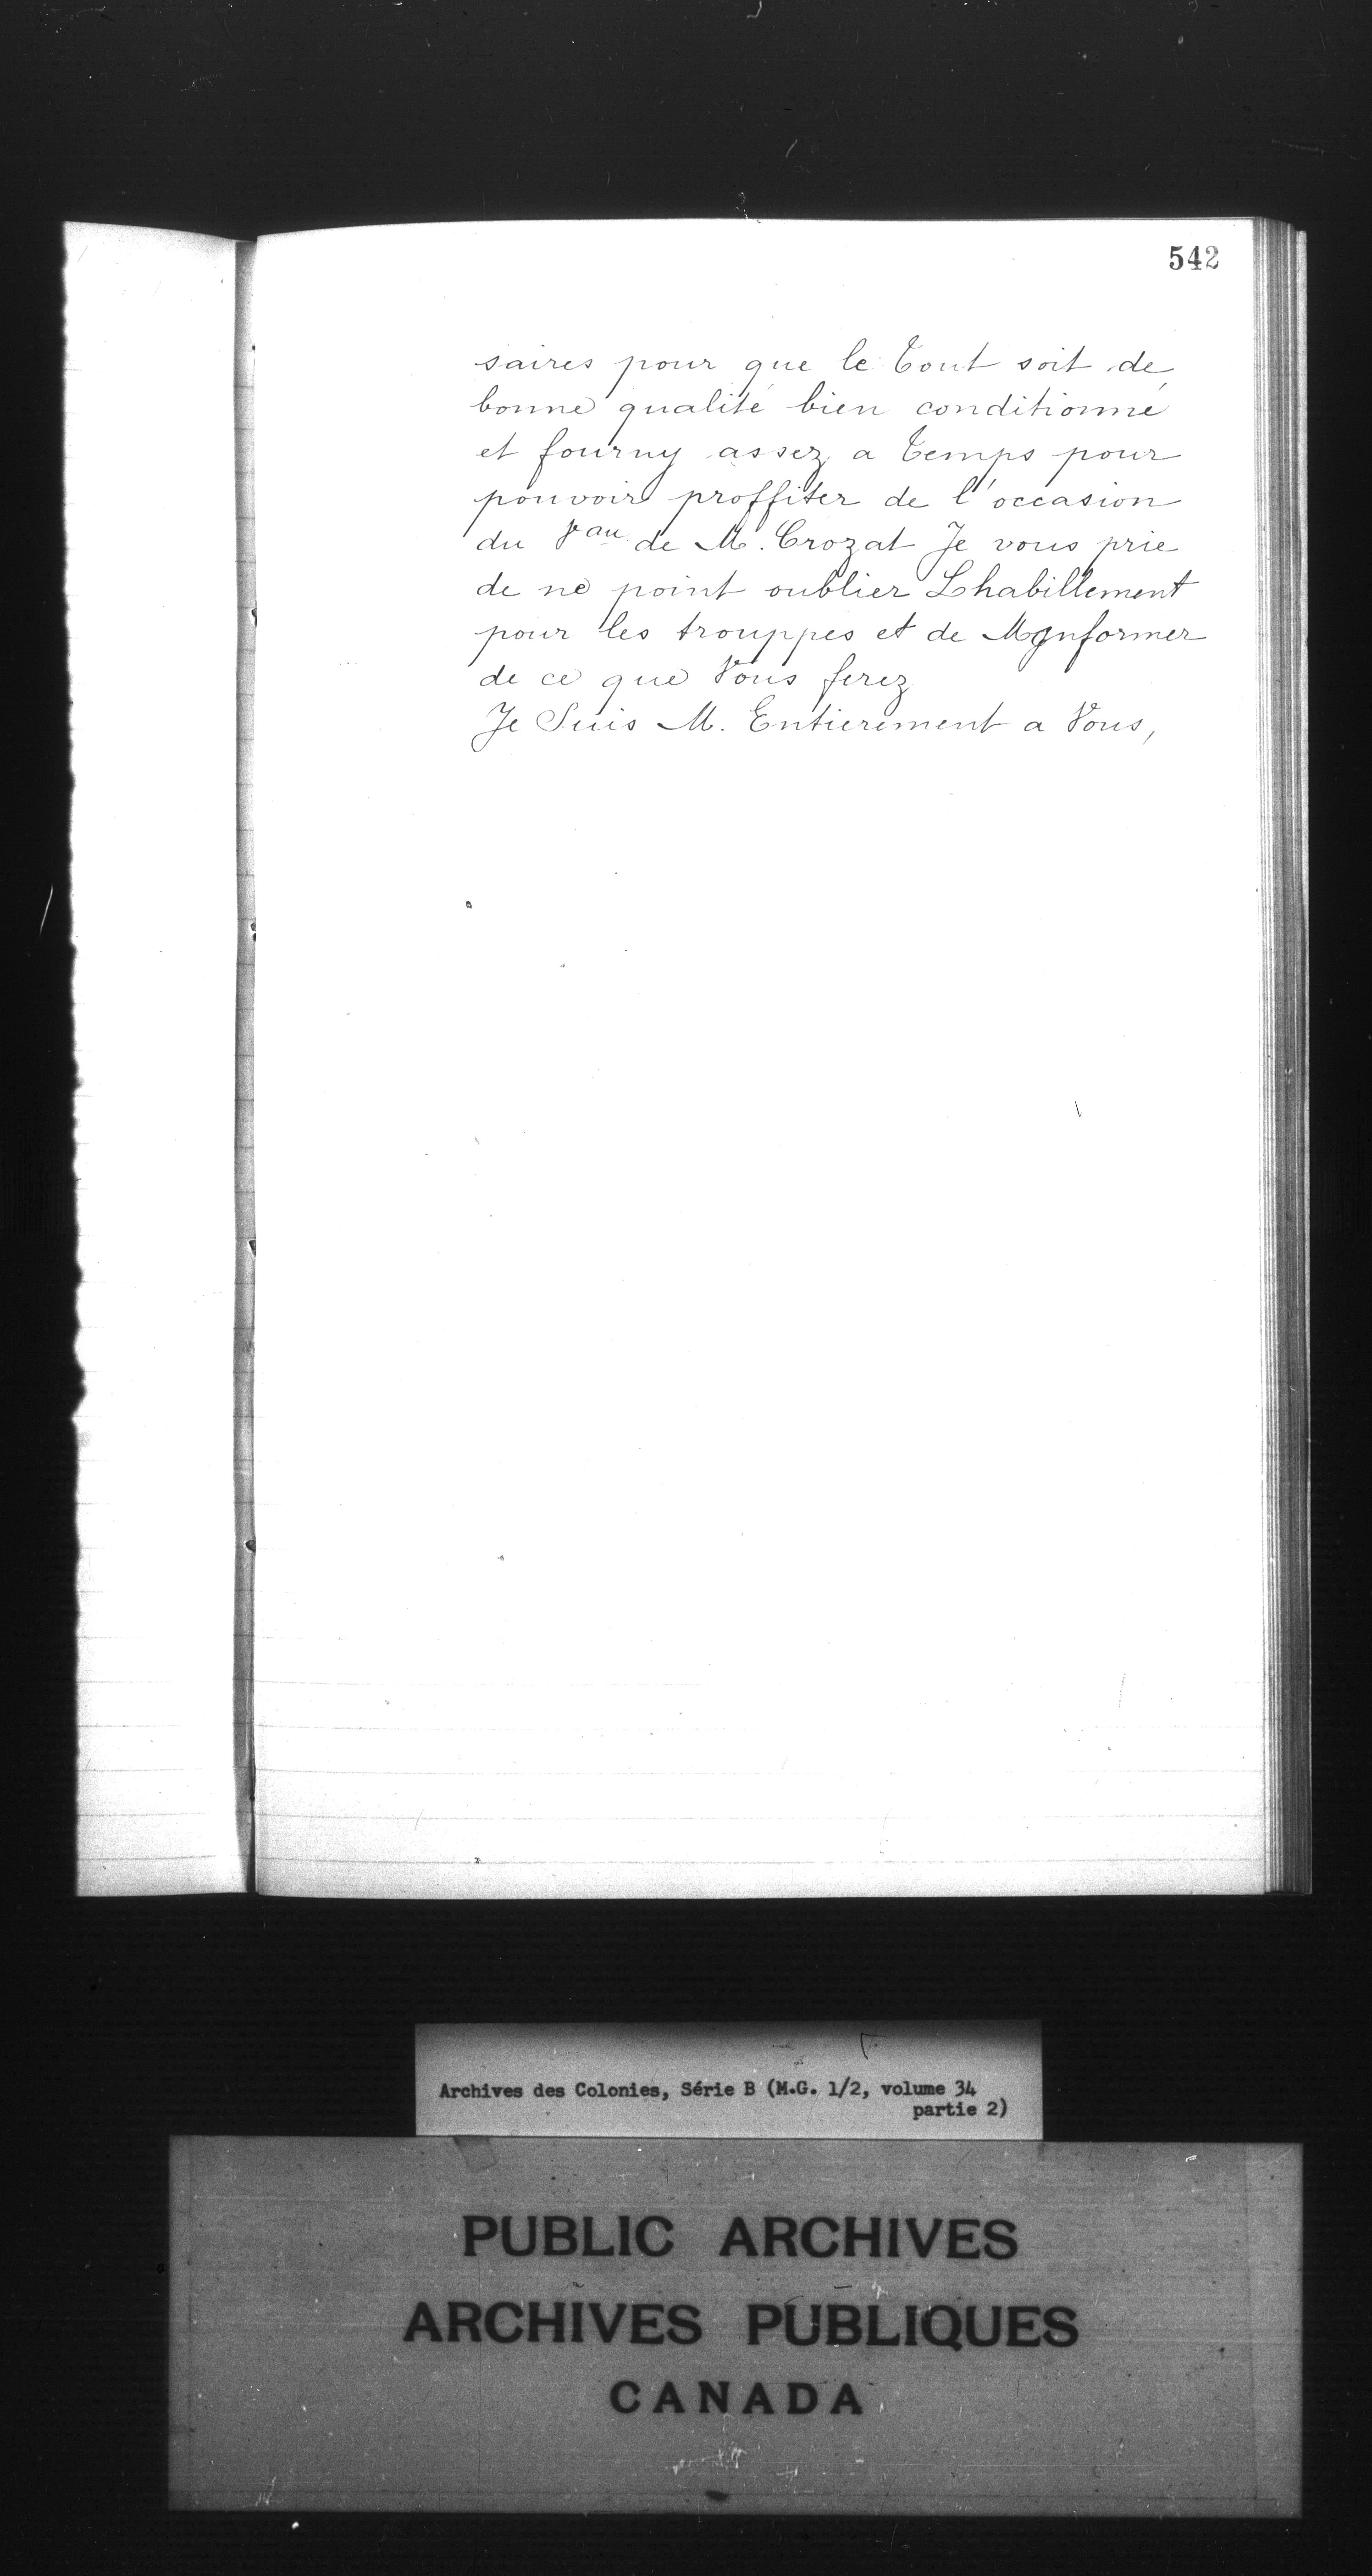 542
saires pour que le tout soit de
bonne qualité bien conditionné
et fourny assez a temps pour
pouvoir proffiter de l'occasion
du Vau de M. Crozat Je vous prie
de ne point oublier Lhabillement
pour les trouppes et de MJnformer
de ce que Vous ferez
Je Suis M. Entierement a Vous,
Archives des Colonies, Série B (M.G. 1/2, volume 34
partie 2)
PUBLIC ARCHIVES
ARCHIVES PUBLIQUES
CANADA